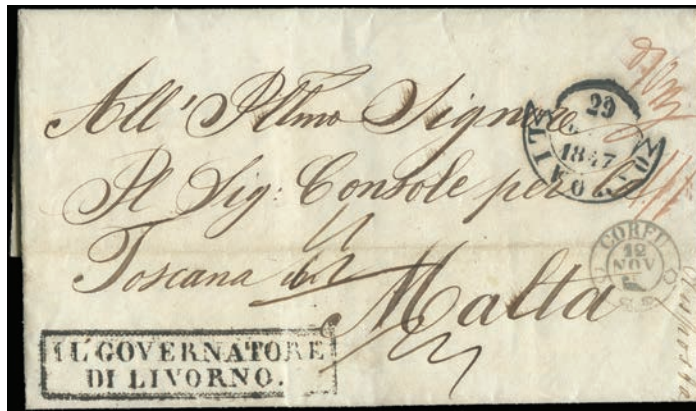 All' Illmo Signore
Il Sig: Console per la
Toscana in
Malta
29
1847
LIVORNO
CORFU
12
NOV
IL GOVERNATORE
DI LIVORNO.